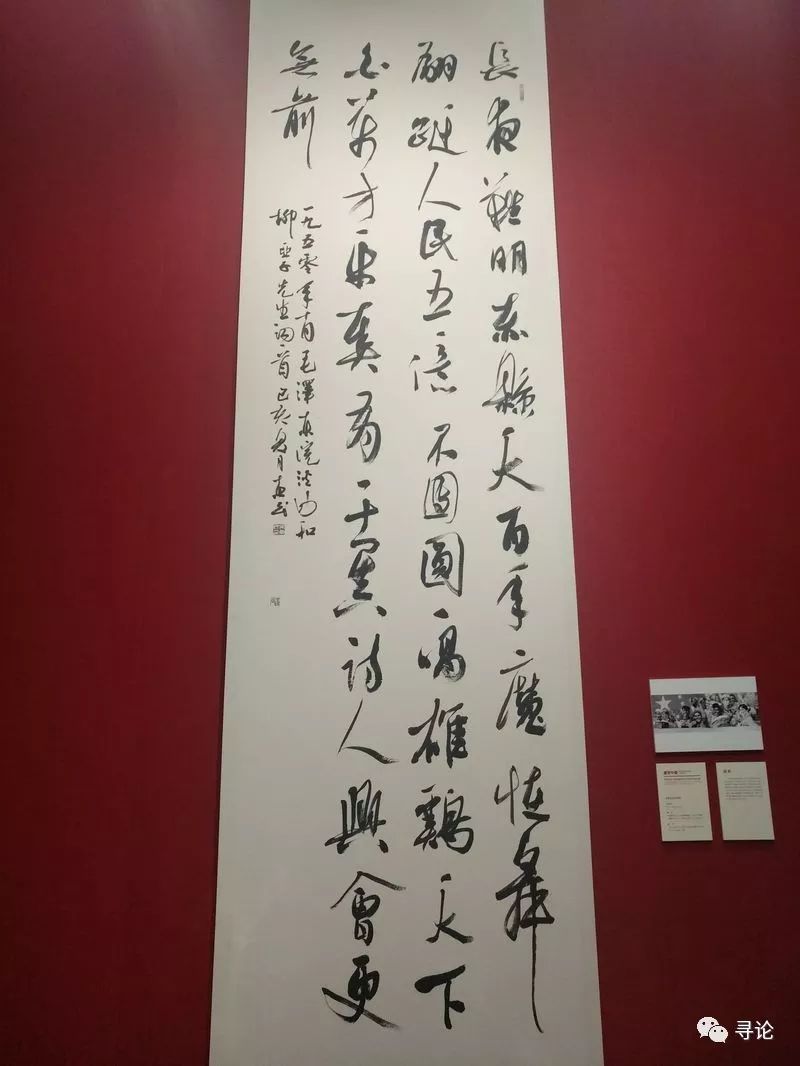 長夜難明赤縣天百年魔怪舞
翩躚人民五億不團圓一唱雄鷄天下
白萬方樂奏有于闐詩人興會更
無前
一九五零年十月毛澤東浣溪沙和
柳亞子先生詞一首己亥月
寻论